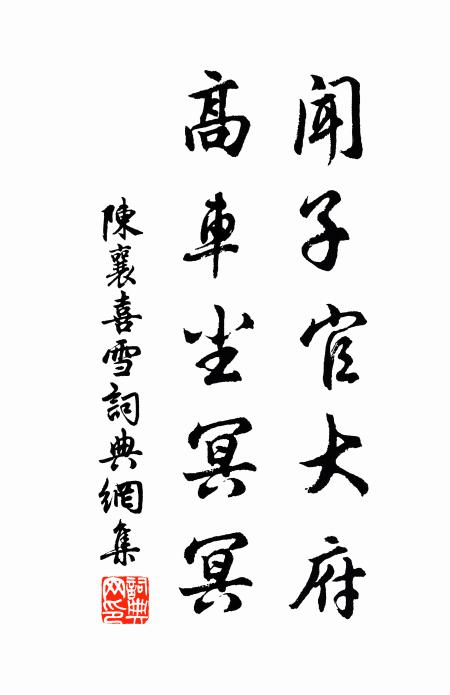 聞子官大府
高車坐冥冥
陳襄喜雪詞典網集
詞典網印